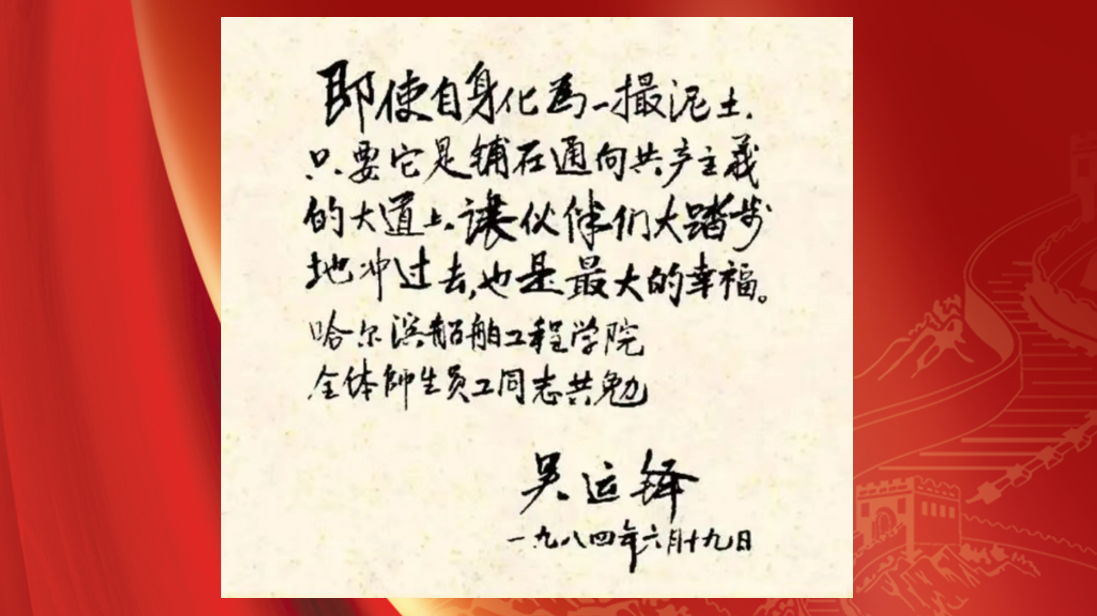 即使自身化為一撮泥土，
只要它是铺在通向共产主義
的大道上，讓伙伴们大踏步
地冲过去，也是最大的幸福。
哈尔滨船舶工程学院
全体師生员工同志共勉
吴运铎
一九八四年六月十九日